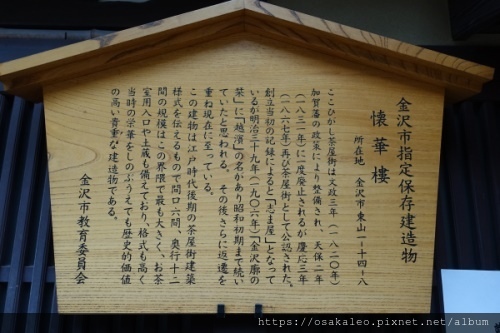 金沢市指定保存建造物
懐華樓
所在地 金沢市東山一-十四-八
ここひがし茶屋街は文政三年（一八二〇年）
加賀藩の政策により整備され、天保二年
（一八三一年）に一度廃止されるが慶応三年
（一八六七年）再び茶屋街として公認された。
創立当初の記録によると「志ま屋」となって
いるが明治三十九年（一九〇六年）金沢廓の
栞」に「越濱」の名があり昭和初期まで続い
ていたと思われる。その後さらに返遷を
重ね現在に至っている。
この建物は江戸時代後期の茶屋街建築
様式を伝えるもので間口六間、奥行十二
間の規模はこの界隈で最も大きく、お茶
室用入口や土蔵も備えており、格式も高く
当時の栄華をしのぶうえでも歴史的価値
の高い貴重な建造物である。
金沢市教育委員会
https://osakaleo.pixnet.net/album